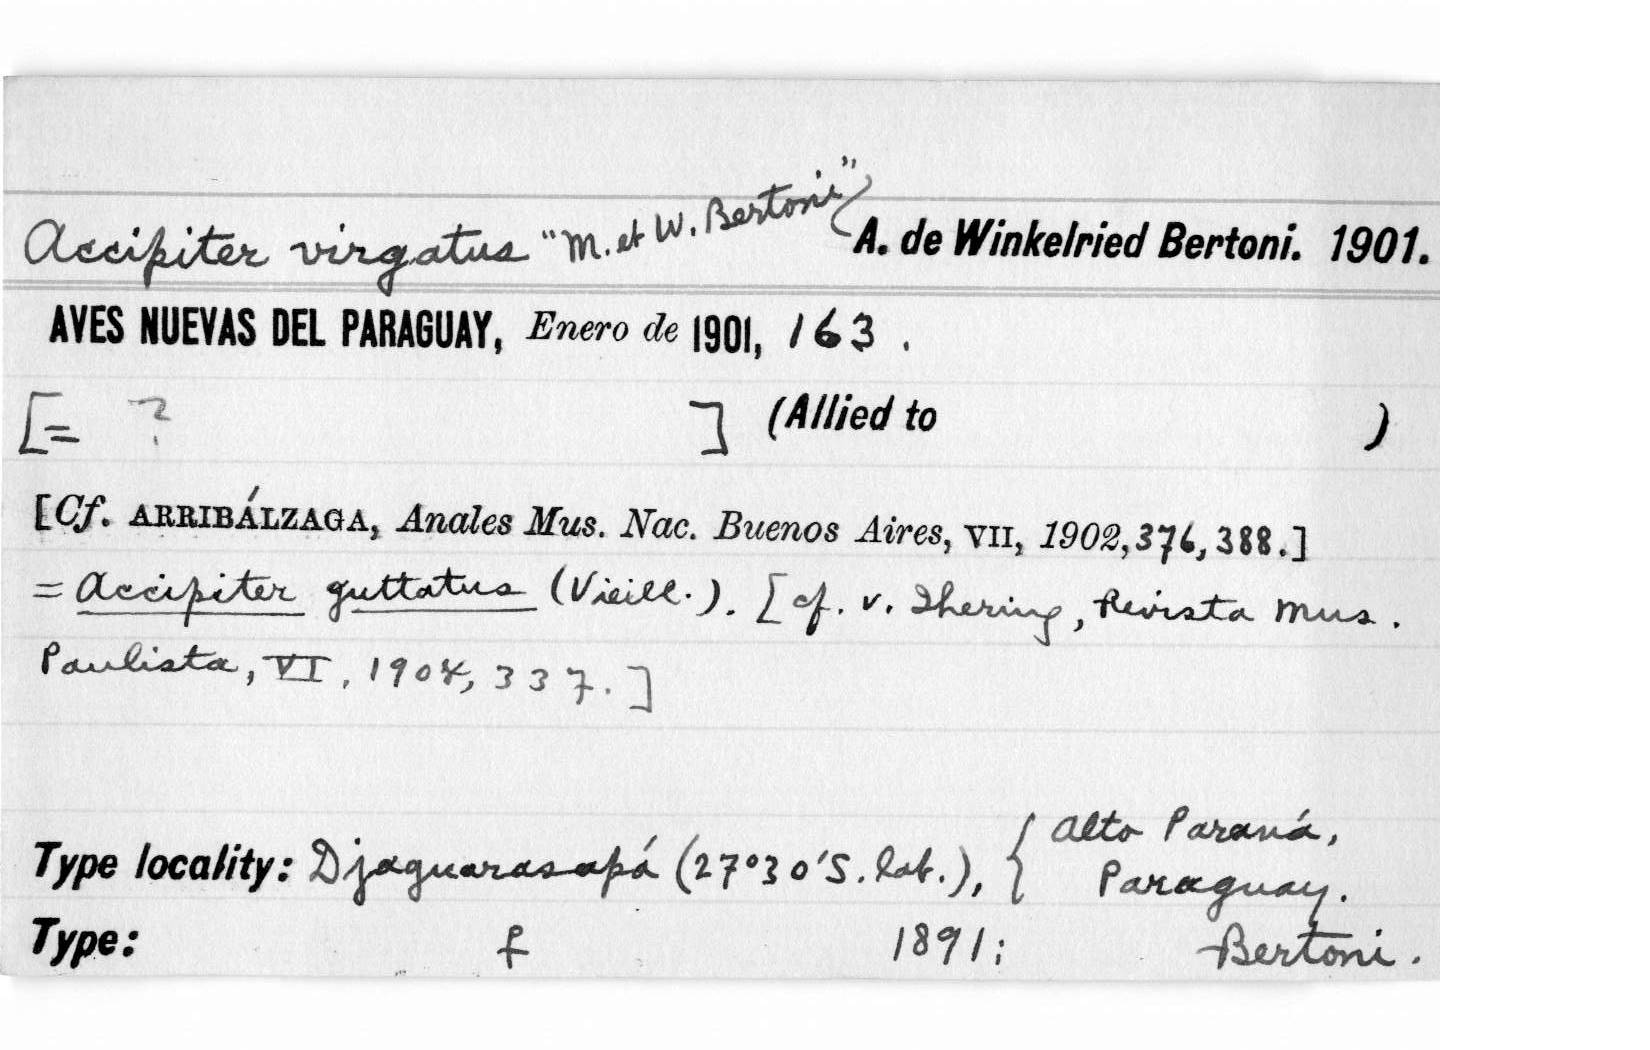 Accipiter virgatus "M. et W. Bertoni" A. de Winkelried Bertoni. 1901.
AVES NUEVAS DEL PARAGUAY, Enero de 1901, 163.
[= ? ] (Allied to )
[Cf. ARRIBÁLZAGA, Anales Mus. Nac. Buenos Aires, VII, 1902, 376, 388.]
= Accipiter guttatus (Vieill.). [cf. v. Ihering, Revista Mus.
Paulista, VI, 1904, 337.]
Type locality: Djaguarasapá (27°30'S. lat.), { Alto Paraná,
Paraguay.
Type: f 1891; Bertoni.